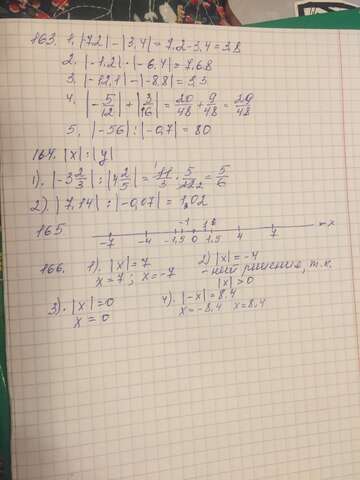 163. 1. |7,2| - |3,4| = 7,2 - 3,4 = 3,8
2. |-1,2| · |-6,4| = 7,68
3. |-12,1| - |-8,8| = 3,3
4. |-5/12| + |3/16| = 20/48 + 9/48 = 29/48
5. |-56| : |-0,7| = 80
164. |x| : |y|
1). |-3 2/3| : |4 2/5| = 11/3 · 5/22 2 = 5/6
2). |7,14| : |-0,07| = 1,02
165
-7 -4 -1,5 -1 0 1 1,5 4 7 x
166. 1). |x| = 7 2) |x| = -4
x = 7; x = -7 - нет решения, т.к.
|x| > 0
3). |x| = 0 4). |-x| = 8,4
x = 0 x = -8,4 x = 8,4